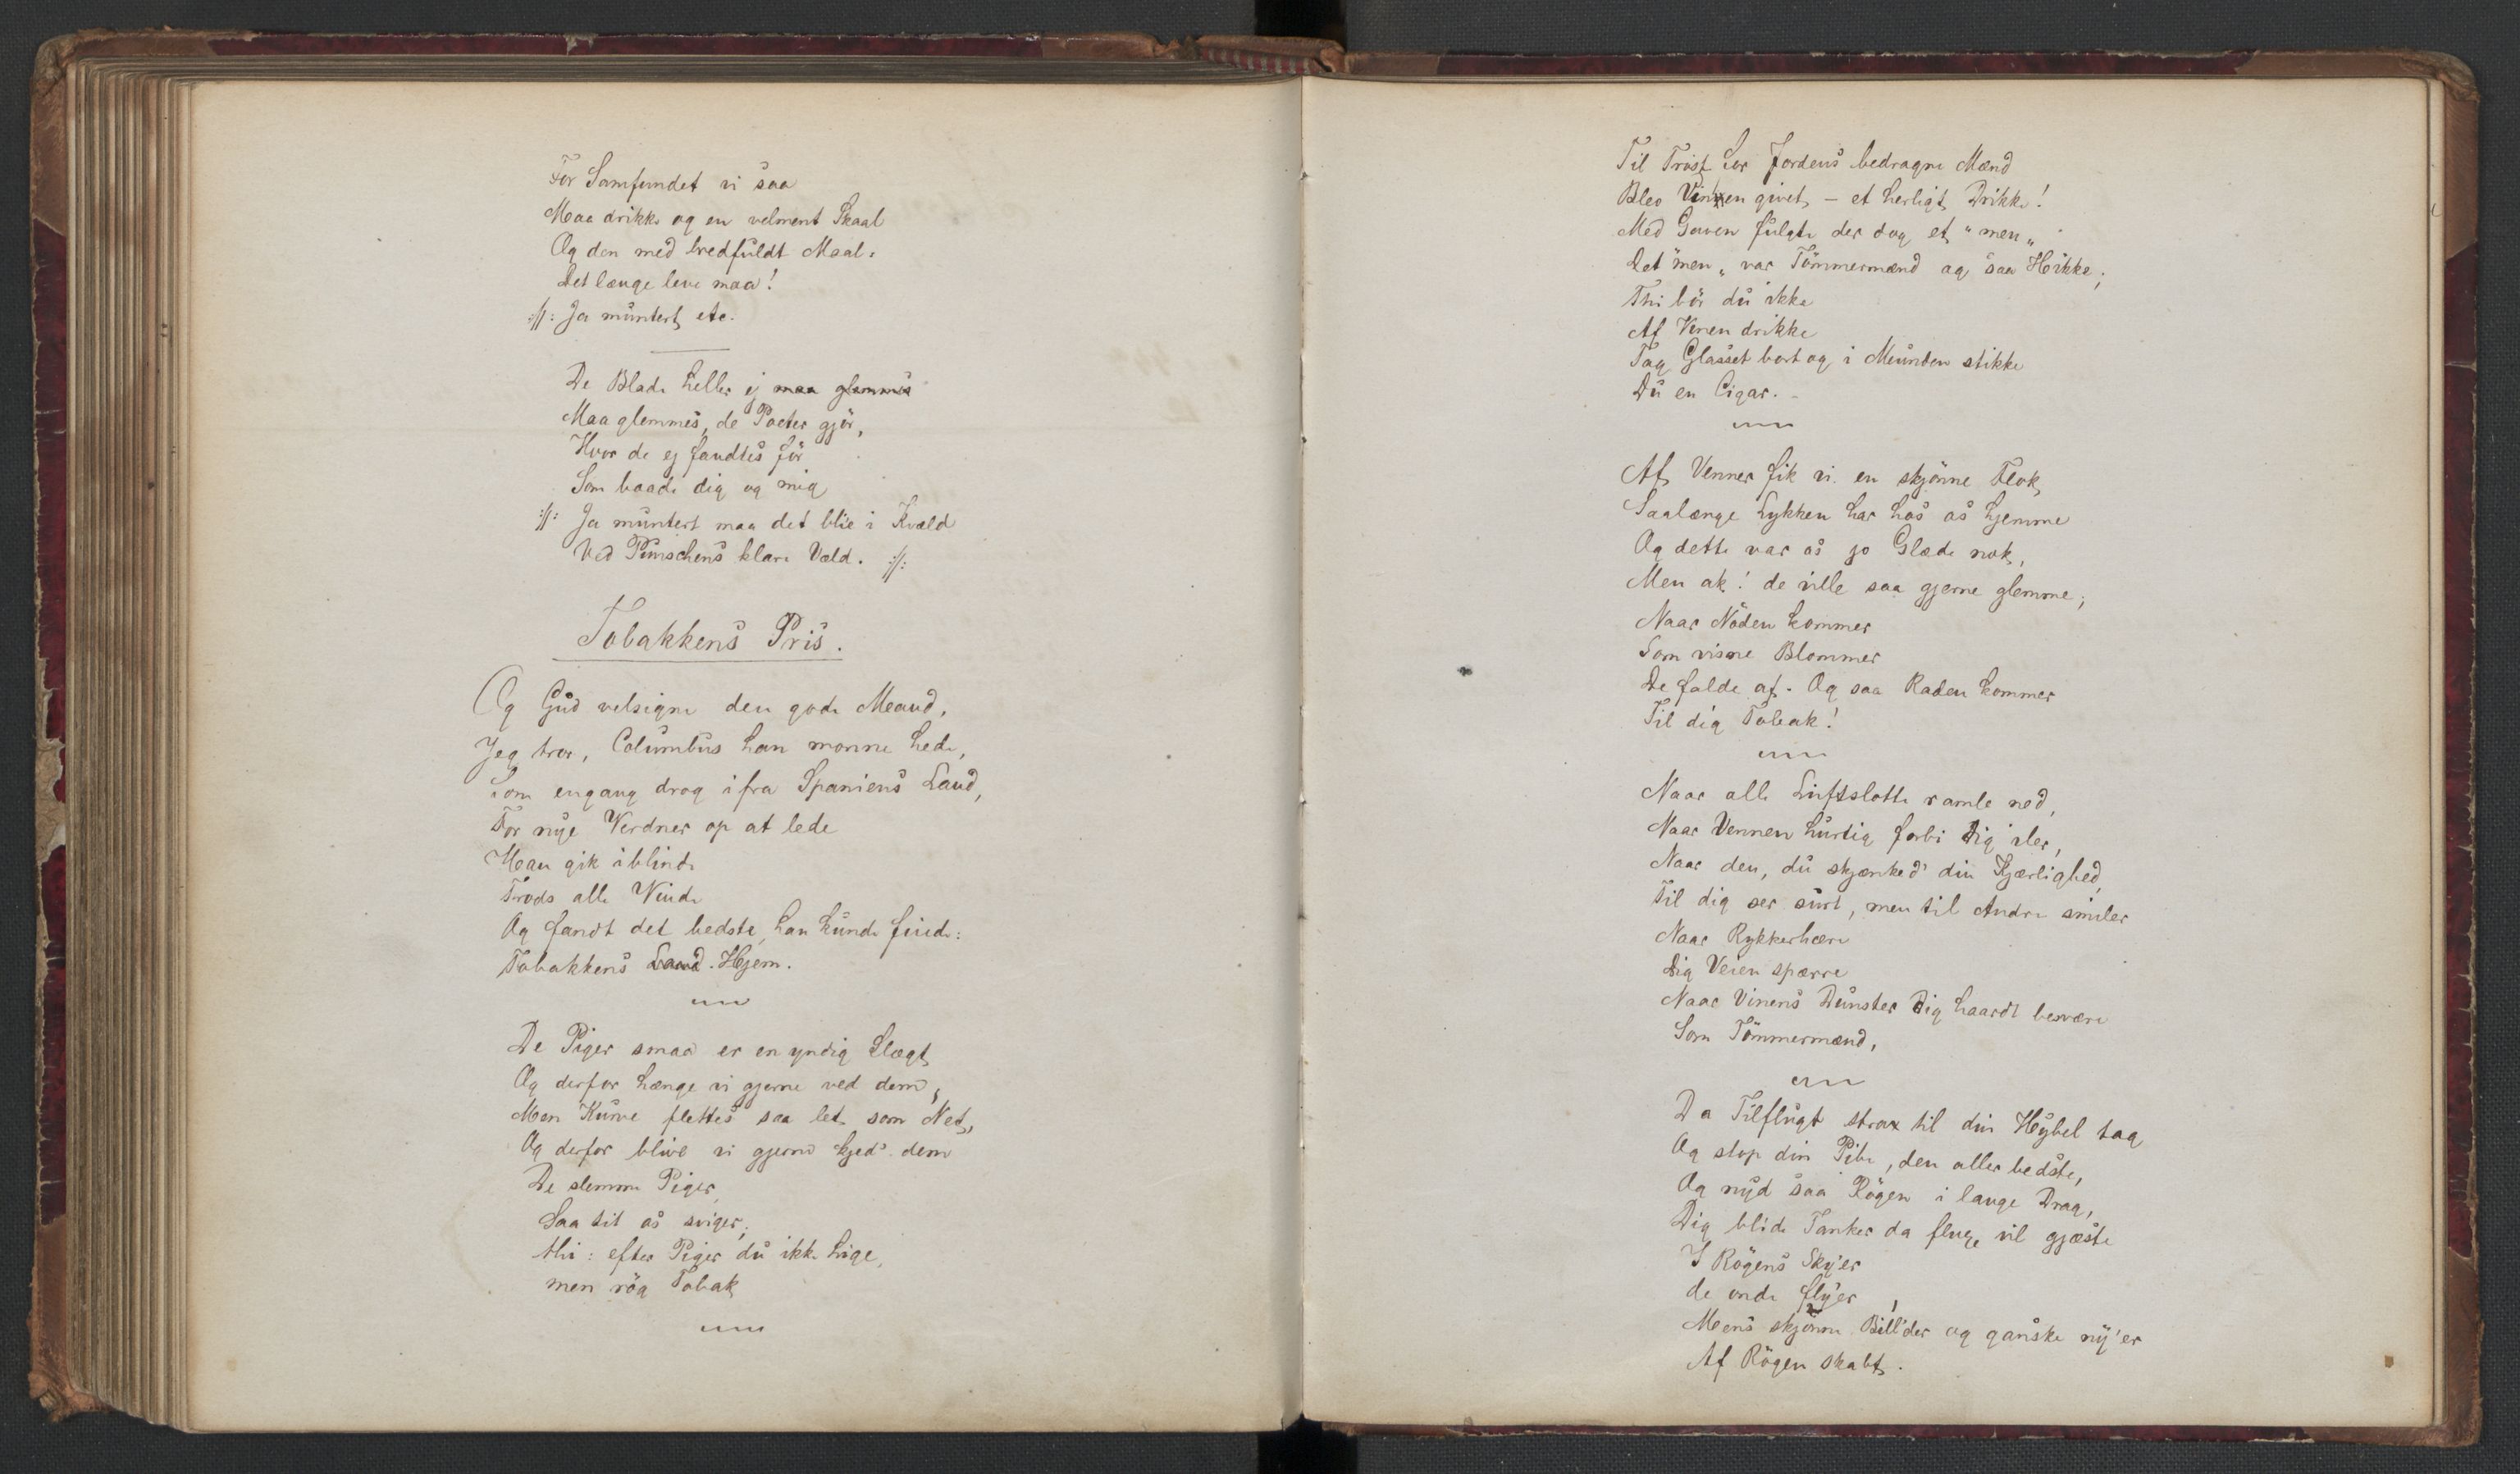 For Samfundet vi saa
Maa drikke og en velment Skaal
Og den med bredfuldt Maal.
Det længe leve maa!
://: Ja muntert etc.
De Blade heller ej maa glemmes
Maa glemmes, de Poeter gjör,
Hvor de ej fandtes för
Som baade dig og mig
:/: Ja muntert maa det blie i Kvæld
Ved Punschens klare Væld. :/:
Tobakkens Pris.
Og Gud velsigne den gode Mand,
Jeg tror, Columbus han monne hede,
Som engang drog ifra Spaniens Land,
For nye Verdner op at lede
Han gik iblinde
Trods alle Vinde
Og fandt det bedste han kunde finde:
Tobakkens Land. Hjem.
De Piger smaa er en yndig Slægt
Og derfor hænge vi gjerne ved dem,
Men Kurve flettes saa let som Net,
Og derfor blive vi gjerne kjed' dem
De slemme Piger
Saa tit os sviger,
thi: efter Piger du ikke hige,
men rög Tobak
Til Tröst for Jordens bedragne Mænd
Blev Vinen givet, – et herligt Drikke!
Med Gaven fulgte der dog et "men"
Det "men" var Tömmermænd og saa Hikke;
Thi bör du ikke
Af Vinen drikke
Tag Glasset bort og i Munden stikke
Du en Cigar. –
Af Venner fik vi en skjönne Flok,
Saalænge Lykken har hos os hjemme
Og dette var os jo Glæde nok,
Men ak! de ville saa gjerne glemme;
Naar Nöden kommer
Som visne Blommer
De falde af. Og saa Raden kommer
Til dig Tobak!
Naar alle Luftslotte ramle ned,
Naar Vennen hurtig forbi dig iler,
Naar den, du skjænked' din Kjærlighed,
Til dig ser surt, men til Andre smiler
Naar Rykkerhære
Dig Veien spærre
Naar Vinens Dunster Dig haardt besvære
Som Tömmermænd,
Da Tilflugt strax til din Hybel tag
Og stop din Pibe, den allerbedste,
Og nyd saa Rögen i lange Drag,
Dig blide Tanker da flux vil gjæste
I Rögens Skyer
de onde flyer,
Mens skjönne Bill'der og ganske ny'er
Af Rögen skabt.